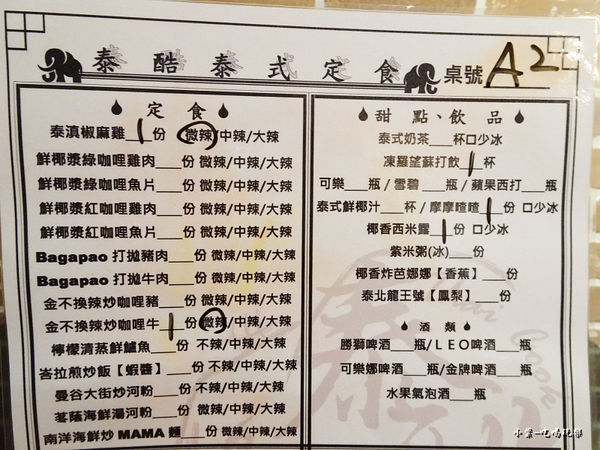 泰酷泰式定食 桌號 A2
定食
泰滇椒麻雞 1 份 微辣/中辣/大辣
鮮椰漿綠咖哩雞肉___份 微辣/中辣/大辣
鮮椰漿綠咖哩魚片___份 微辣/中辣/大辣
鮮椰漿紅咖哩雞肉___份 微辣/中辣/大辣
鮮椰漿紅咖哩魚片___份 微辣/中辣/大辣
Bagapao 打拋豬肉___份 微辣/中辣/大辣
Bagapao 打拋牛肉___份 微辣/中辣/大辣
金不換辣炒咖哩豬___份 微辣/中辣/大辣
金不換辣炒咖哩牛 1 份 微辣/中辣/大辣
檸檬清蒸鮮鱸魚___份 不辣/中辣/大辣
峇拉煎炒飯【蝦醬】___份 不辣/中辣/大辣
曼谷大街炒河粉___份 不辣/中辣/大辣
荖蔭海鮮湯河粉___份 微辣/中辣/大辣
南洋海鮮炒 MAMA 麵___份 微辣/中辣/大辣
甜點、飲品
泰式奶茶___杯口少冰
凍羅望蘇打飲 1 杯
可樂___瓶/雪碧___瓶/蘋果西打___瓶
泰式鮮椰汁___杯/摩摩喳喳 1 份 口少冰
椰香西米露 1 份 口少冰
紫米粥(冰)___份
椰香炸芭娜娜【香蕉】___份
泰北龍王號【鳳梨】___份
酒類
勝獅啤酒___瓶/LEO啤酒___瓶
可樂娜啤酒___瓶/金牌啤酒___瓶
水果氣泡酒___瓶